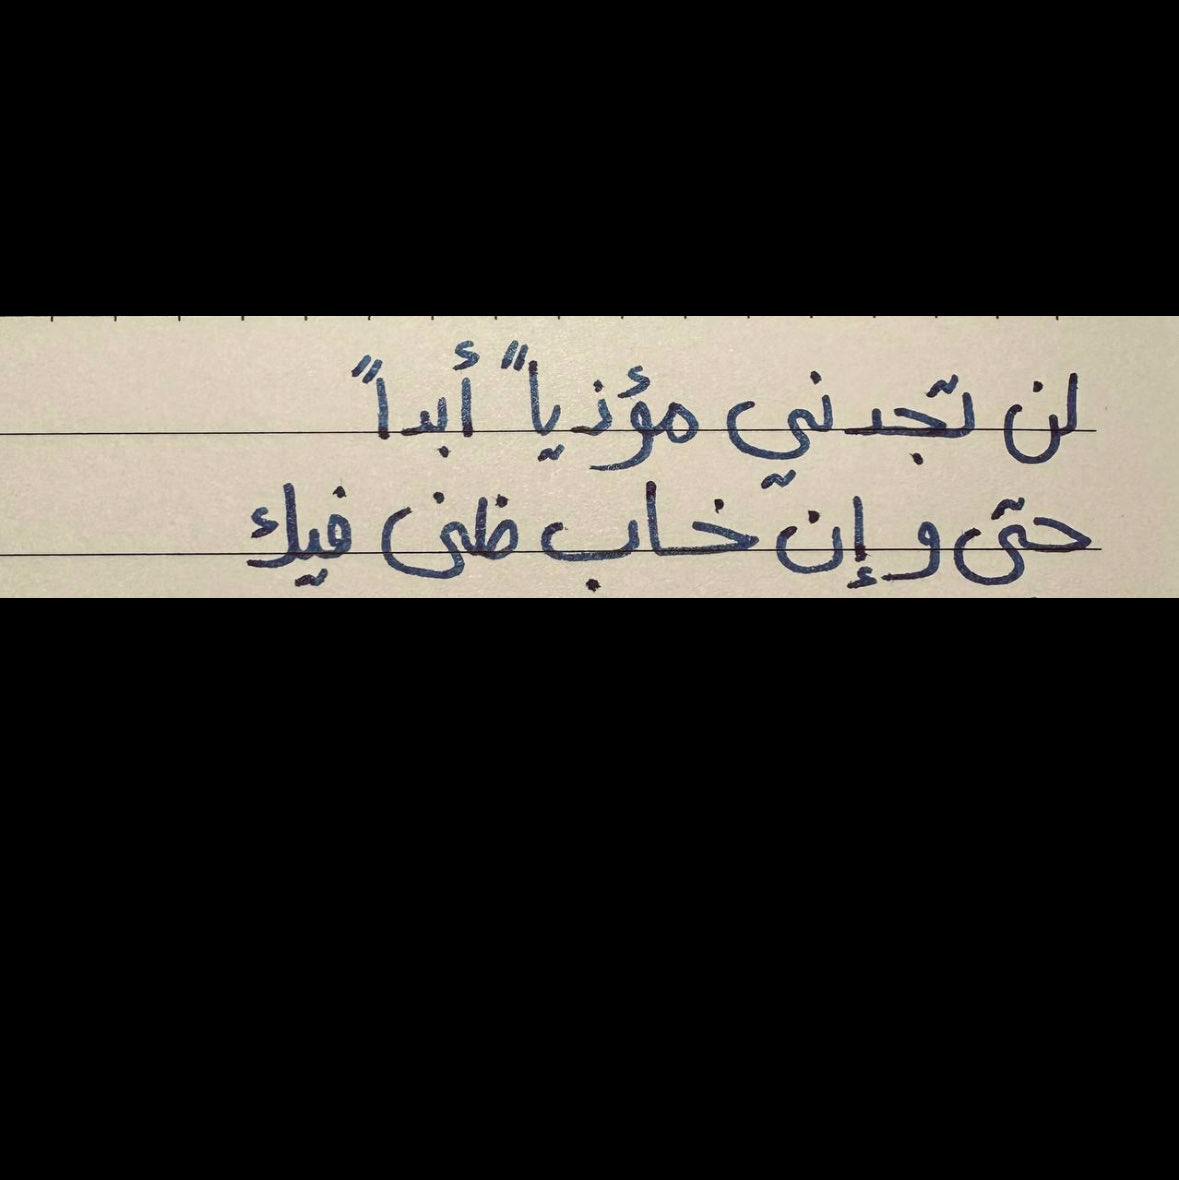 لن تجدني مؤذياً أبداً
حتى وإن خاب ظني فيك